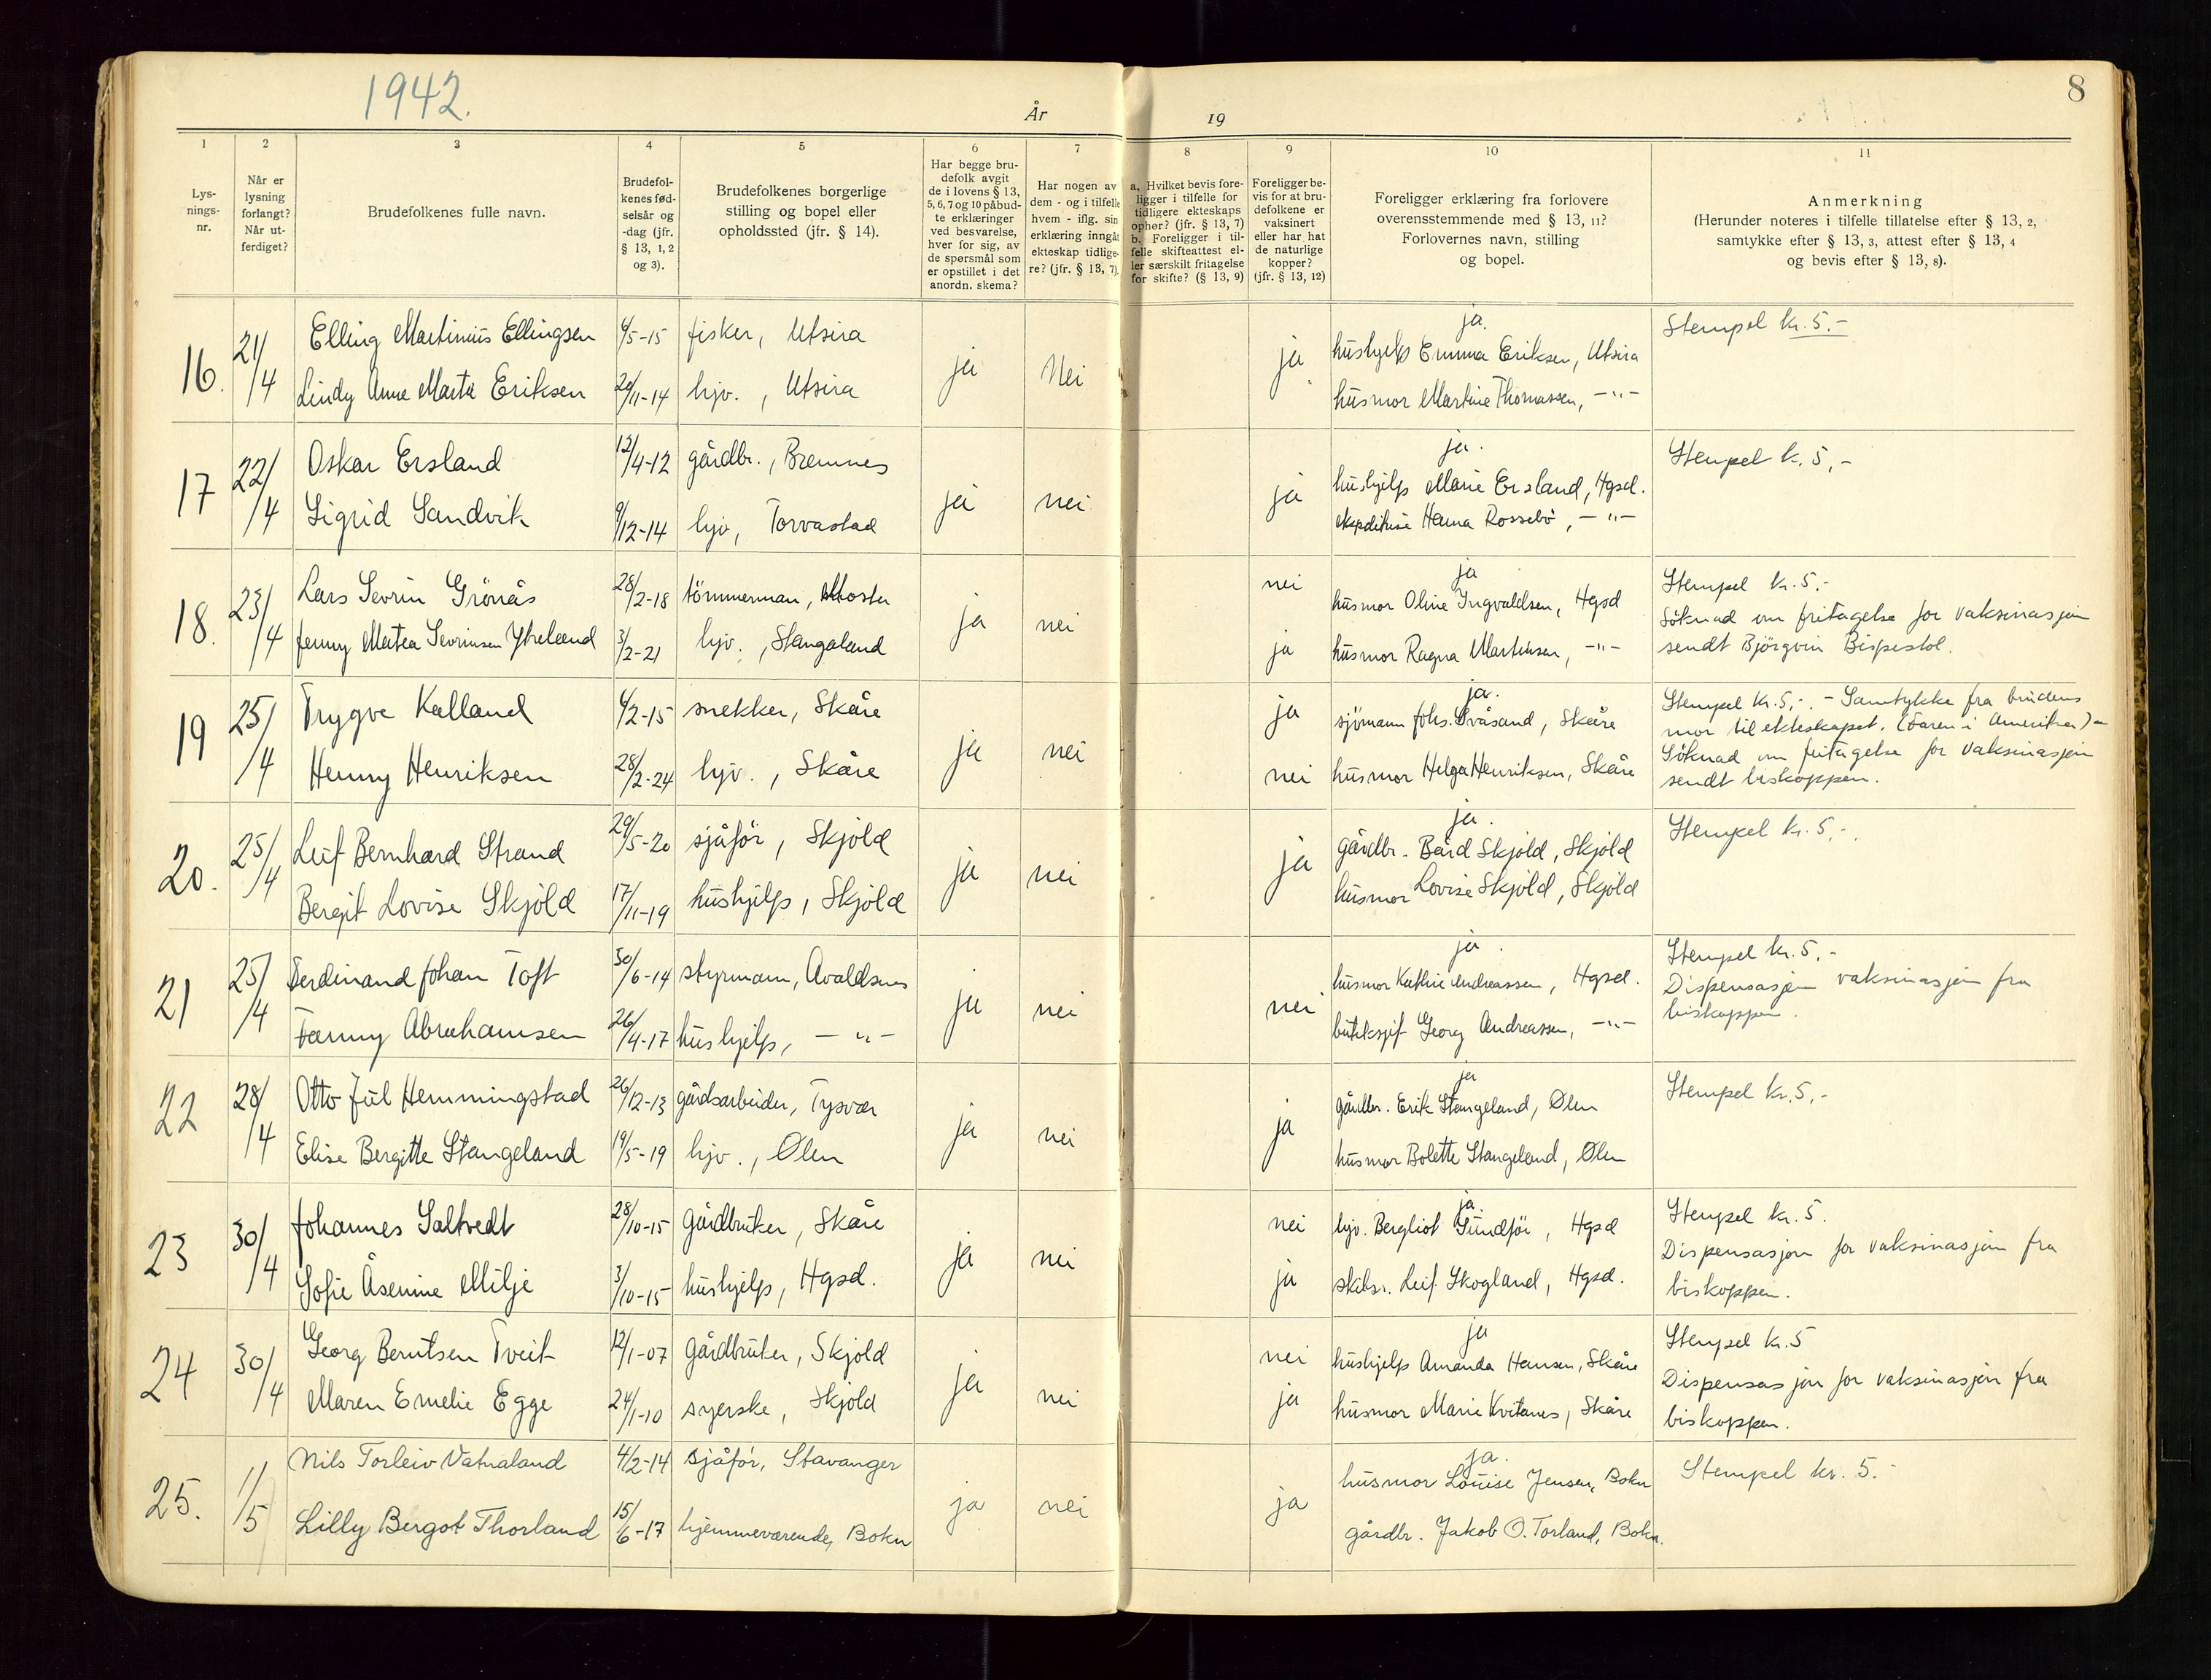 1942.
År
19
8
1
2
3
4
5
6
7
8
9
10
11
Lys-
nings-
nr.
Når er
lysning
forlangt?
Når ut-
ferdiget?
Brudefolkenes fulle navn.
Brudefol-
kenes fød-
selsår og
-dag (jfr.
§ 13, 1, 2
og 3).
Brudefolkenes borgerlige
stilling og bopel eller
opholdssted (jfr. § 14).
Har begge bru-
defolk avgit
de i lovens § 13,
5, 6, 7 og 10 påbud-
te erklæringer
ved besvarelse,
hver for sig, av
de spørsmål som
er opstillet i det
anordn. skema?
Har nogen av
dem - og i tilfelle
hvem - iflg. sin
erklæring inngåt
ekteskap tidlige-
re? (jfr. § 13, 7).
a. Hvilket bevis fore-
ligger i tilfelle for
tidligere ekteskaps
ophør? (jfr. § 13, 7)
b. Foreligger i til-
felle skifteattest el-
ler særskilt fritagelse
for skifte? (§ 13, 9)
Foreligger be-
vis for at bru-
defolkene er
vaksinert
eller har hat
de naturlige
kopper?
(jfr. § 13, 12)
Foreligger erklæring fra forlovere
overensstemmende med § 13, 11?
Forlovernes navn, stilling
og bopel.
Anmerkning
(Herunder noteres i tilfelle tillatelse efter § 13, 2,
samtykke efter § 13, 3, attest efter § 13, 4
og bevis efter § 13, 8).
16. 21/4
Elling Martinius Ellingsen 4/5-15 fisker, Utsira
Lindy Anne Marta Eriksen 20/11-14 hjv., Utsira
ja Nei ja
ja.
hushjelp Emma Eriksen, Utsira
husmor Martine Thomassen, -"-
Stempel kr. 5.-
17 22/4
Oskar Ersland 12/4-12 gårdbr., Bremnes
Sigrid Sandvik 9/12-14 hjv, Torvastad
ja nei ja
ja.
hushjelp Marie Ersland, Hgsd.
ekspditrise Hanna Rossebö, -"-
Stempel k. 5,-
18. 23/4
Lars Sevrin Grönås 28/2-18 tömmerman, Moster
Jenny Matea Sevrinsen Ytreland 3/2-21 hjv., Stangaland
ja nei
nei
ja
ja
husmor Oline Ingvaldsen, Hgsd
husmor Ragna Martinsen, -"-
Stempel kr. 5.-
Söknad om fritagelse for vaksinasjon
sendt Björgvin Bispestol.
19 25/4
Trygve Kalland 4/2-15 snekker, Skåre
Henny Henriksen 28/2-24 hjv., Skåre
ja nei
ja
nei
ja.
sjömann Johs. Svåsand, Skåre
husmor Helga Henriksen, Skåre
Stempel kr. 5,-. - Samtykke fra brudens
mor til ekteskapet. (Faren i Amerika) -
Söknad om fritagelse for vaksinasjon
sendt biskoppen.
20. 25/4
Leif Bernhard Strand 29/5-20 sjåför, Skjold
Bergit Lovise Skjold 17/11-19 hushjelp, Skjold
ja nei ja
ja.
gårdbr. Bård Skjold, Skjold
husmor Lovise Skjold, Skjold
Stempel kr. 5,-.
21 25/4
Ferdinand Johan Toft 30/6-14 styrmann, Avaldsnes
Fanny Abrahamsen 26/4-17 hushjelp, - " -
ja nei nei
ja.
husmor Kathrine Andreassen, Hgsd.
Georg Andreassen, -"-
Stempel kr. 5,-
Dispensasjon vaksinasjon fra
biskoppen.
22 28/4
Otto Juul Hemmingstad 26/12-13 gårdsarbeider, Tysvær
Elise Bergitte Stangeland 19/5-19 hjv., Ølen
ja nei ja
ja
gårdbr. Erik Stangeland, Ølen
husmor Bolette Stangeland, Ølen
Stempel kr. 5,-
23 30/4
Johannes Saltvedt 28/10-15 gårdbruker, Skåre
Sofie Åsenine Milje 3/10-15 hushjelp, Hgsd.
ja nei
nei
ja
ja.
hjv. Bergliot Sundför, Hgsd
skibsr. Leif Skogland, Hgsd.
Stempel kr. 5.
Dispensasjon for vaksinasjon fra
biskoppen.
24 30/4
Georg Berntsen Tveit 12/1-07 gårdbruker, Skjold
Maren Emelie Egge 24/1-10 syerske, Skjold
ja nei
nei
ja
ja
hushjelp Amanda Hansen, Skåre
husmor Marie Kvitanes, Skåre
Stempel kr. 5
Dispensasjon for vaksinasjon fra
biskoppen.
25. 1/5
Nils Torleiv Vatnaland 4/2-14 sjåför, Stavanger
Lilly Bergot Thorland 15/6-17 hjemmeværende, Bokn
ja nei ja
ja.
husmor Louise Jensen, Bokn
gårdbr. Jakob O. Torland, Bokn.
Stempel kr. 5.-